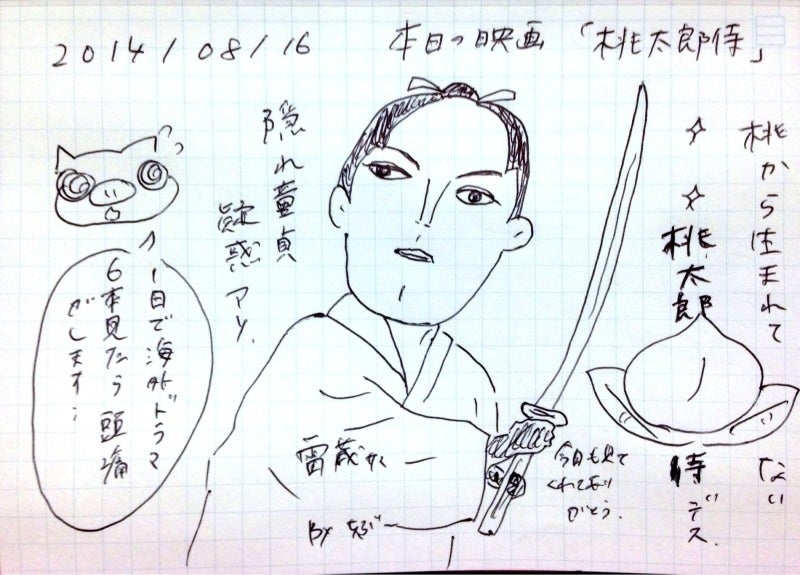 2014/08/16
本日の映画「桃太郎侍」
桃から生まれて
ない
桃太郎
侍デス.
隠れ童貞
疑惑アリ.
1日で海外ドラマ
6本見たら頭痛
がします;
雷蔵かく
By ちぶー
今日も見て
くれてあり
がとう.